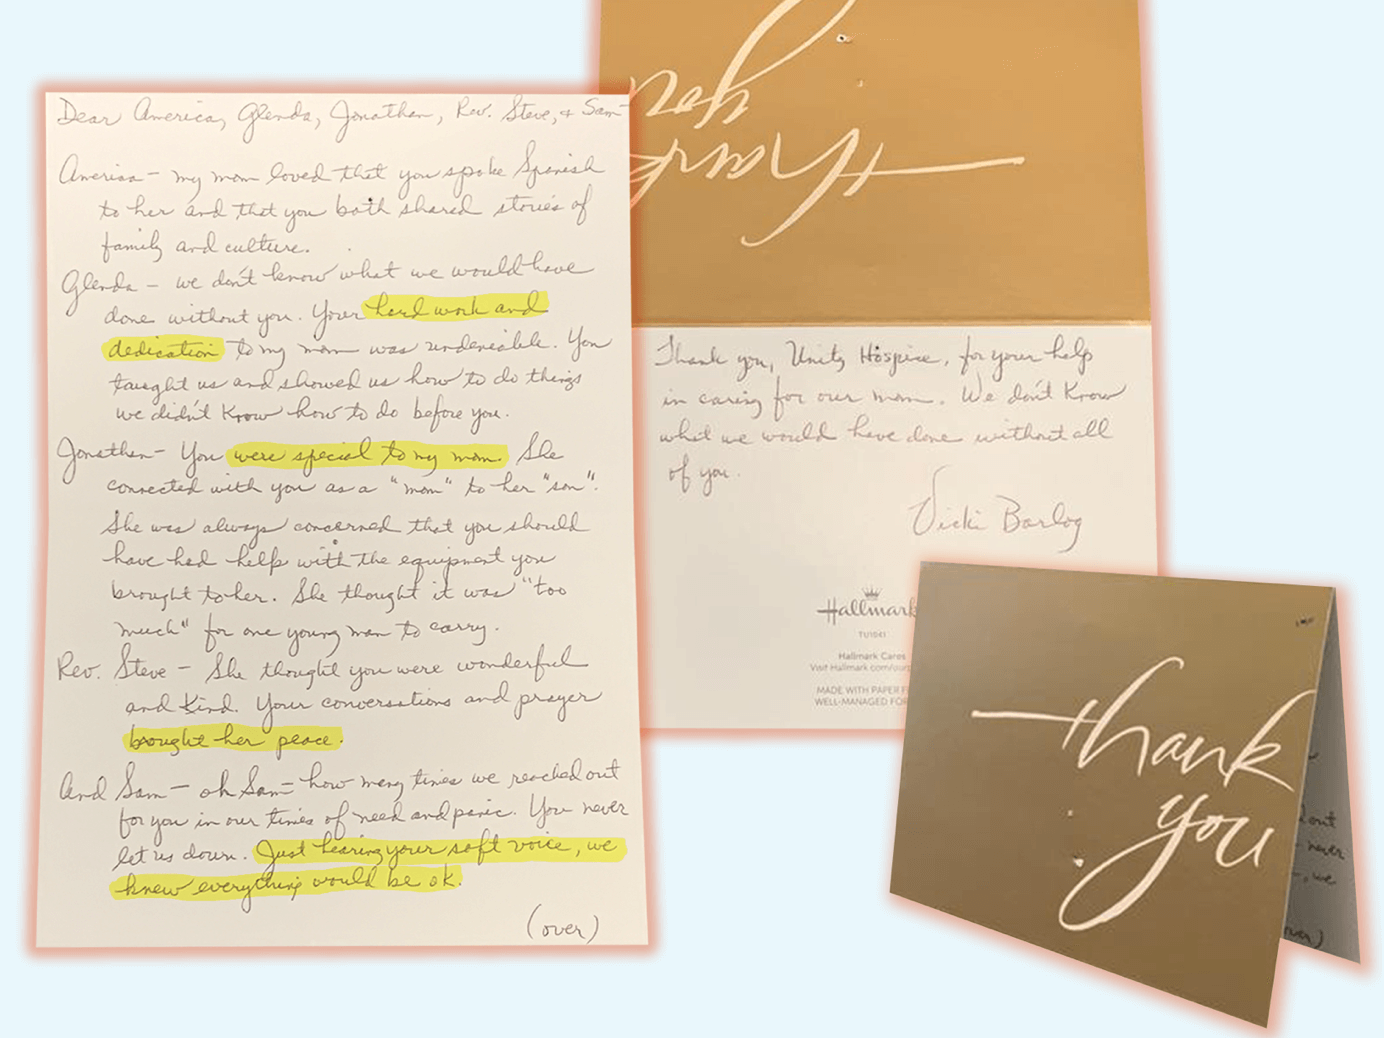 Dear America, Glenda, Jonathan, Rev. Steve, + Sam-
America - my mom loved that you spoke Spanish
to her and that you both shared stories of
family and culture.
Glenda - we don't know what we would have
done without you. Your hard work and
dedication to my mom was undeniable. You
taught us and showed us how to do things
we didn't know how to do before you.
Jonathan - You were special to my mom. She
connected with you as a "mom" to her "son".
She was always concerned that you should
have had help with the equipment you
brought to her. She thought it was "too
much" for one young man to carry.
Rev. Steve - She thought you were wonderful
and kind. Your conversations and prayer
brought her peace.
And Sam - oh Sam - how many times we reached out
for you in our times of need and panic. You never
let us down. Just hearing your soft voice, we
knew everything would be ok.
(over)
Thank
you
Thank you, Unity Hospice, for your help
in caring for our mom. We don't know
what we would have done without all
of you.
Vicki Barlog
Hallmark
Hallmark Cares
Visit Hallmark.com/our
MADE WITH PAPER F
WELL-MANAGED FOR
Thank
you
out
never
we
over)